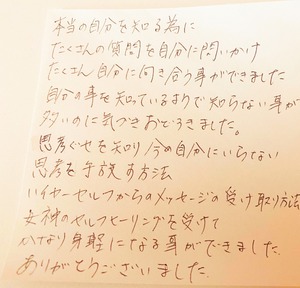 本当の自分を知る為に
たくさんの質問を自分に問いかけ
たくさん自分に向き合う事ができました
自分の事を知っているようで知らない事が
多いのに気づきおどろきました。
思考ぐせを知り今の自分にいらない
思考を手放す方法
ハイヤーセルフからのメッセージの受け取り方法
女神のセルフヒーリングを受けて
かなり身軽になる事ができました
ありがとうございました